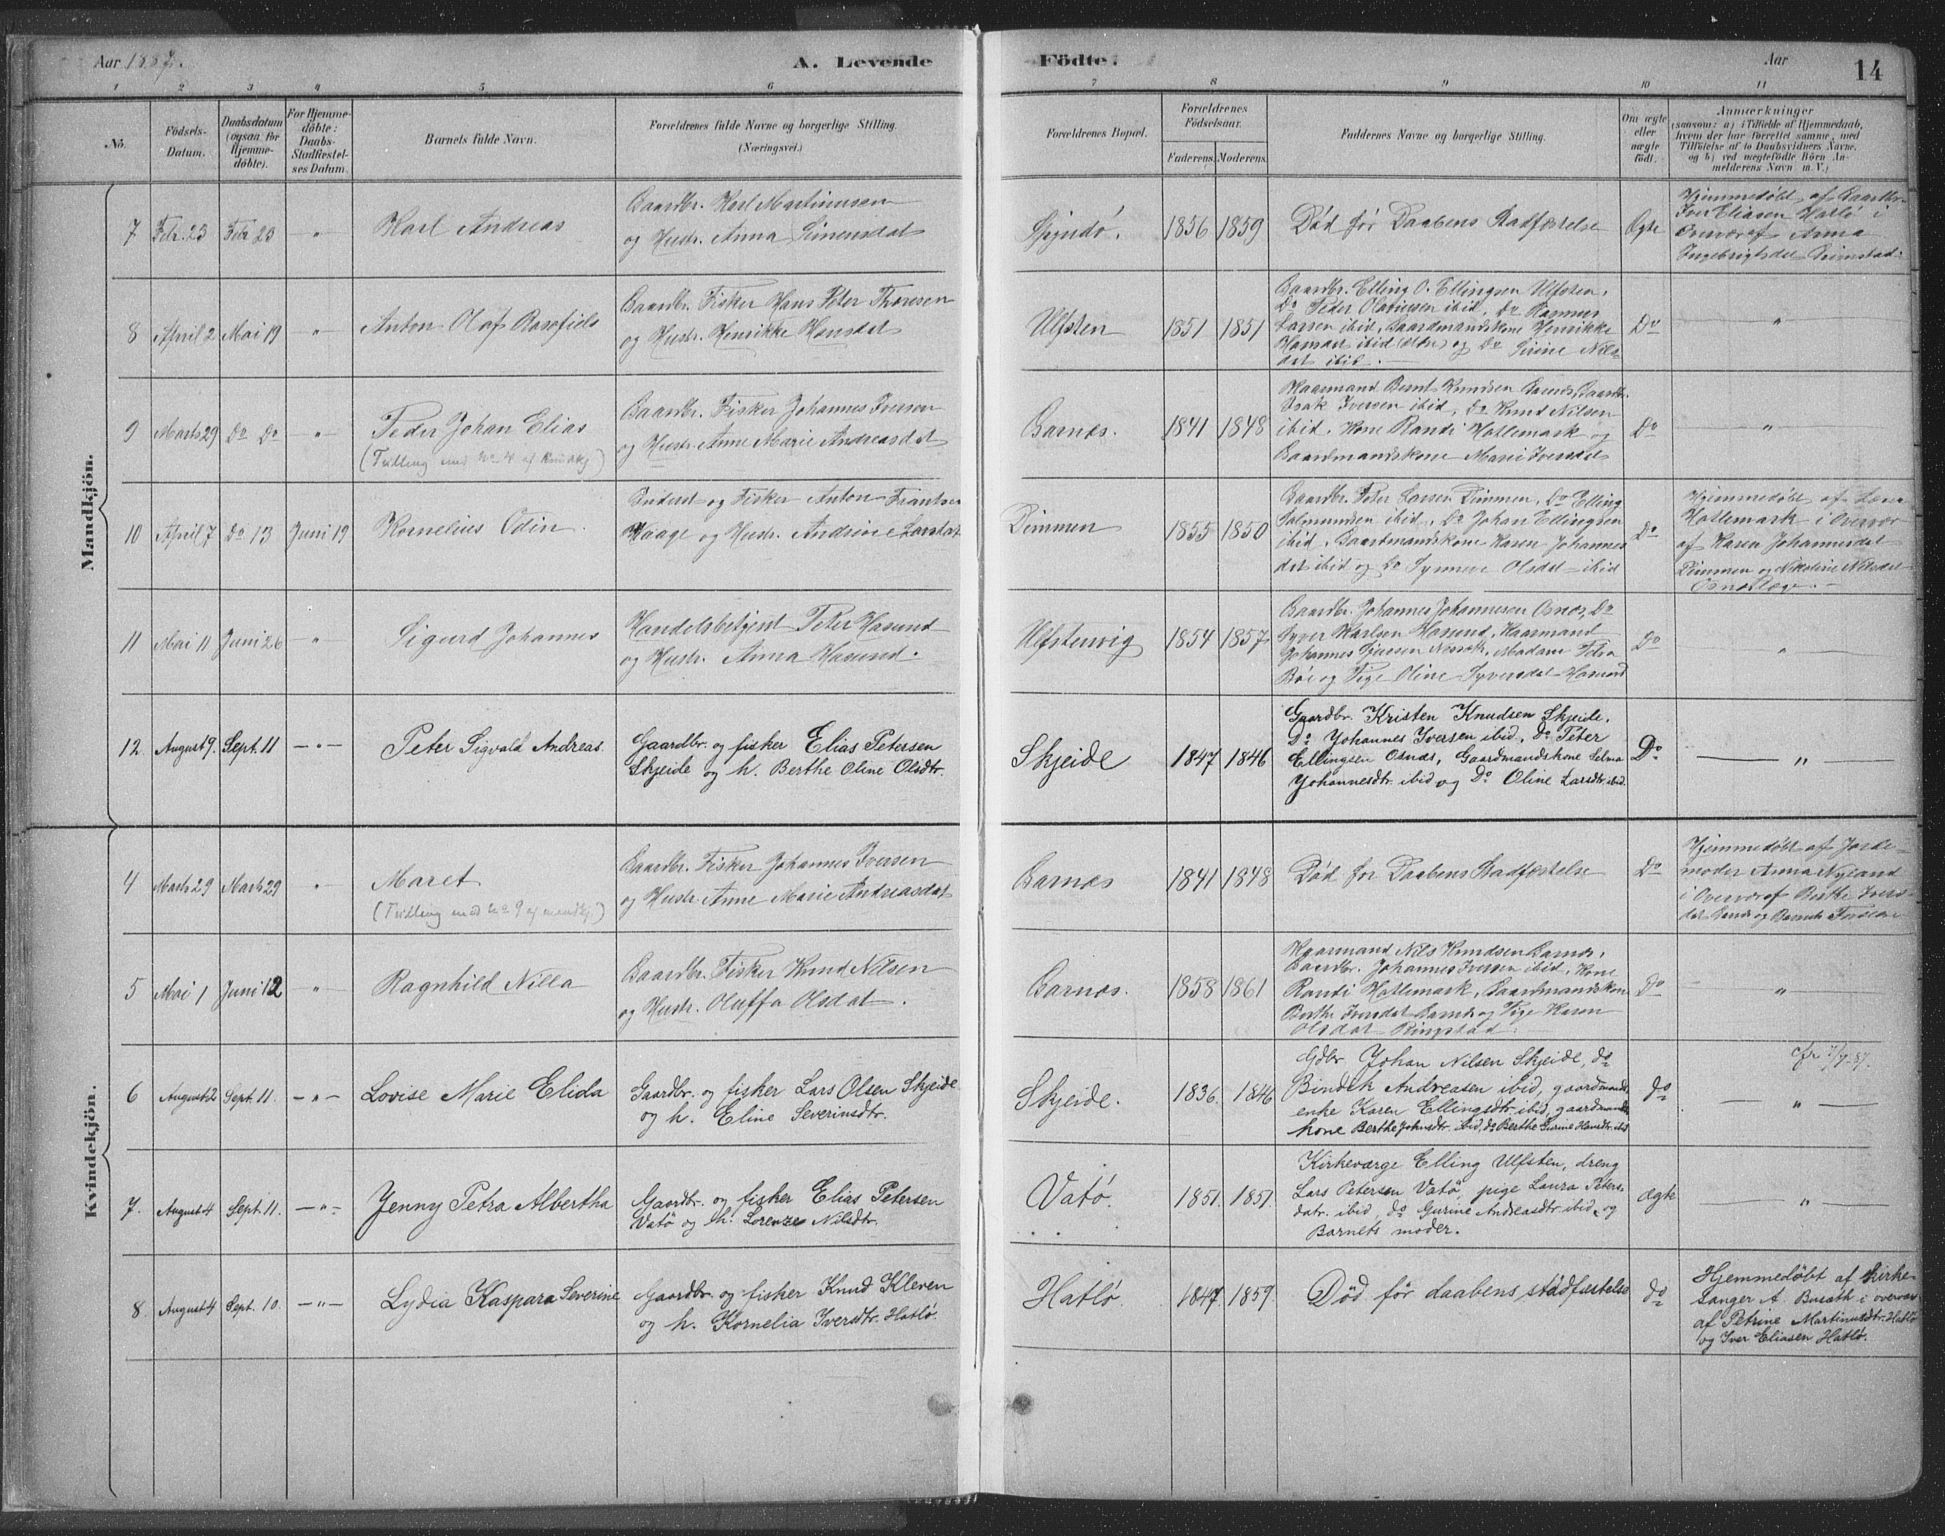 Aar 1887.
A. Levende
Fødte.
Aar
14
1 2 3 4 5 6 7 8 9 10 11
No.
Födsels-
Datum.
Daabsdatum
(ogsaa for
Hjemme-
döbte).
For Hjemme-
döbte:
Daabs-
Stadfæstel-
ses Datum.
Barnets fulde Navn.
Forældrenes fulde Navne og borgerlige Stilling.
(Næringsvei.)
Forældrenes Bopæl.
Forældrenes
Födselsaar.
Faderens. Moderens.
Faddernes Navne og borgerlige Stilling.
Om ægte
eller
uægte
födt.
Anmærkninger
(saasom: a) i Tilfælde af Hjemmedaab,
hvem der har forrettet samme, med
Tilföielse af to Daabsvidners Navne,
og b) ved uægtefödte Börn An-
melderens Navn m. V.)
Mandkjön.
7 Febr. 23 Febr 23 " Karl Andreas
Gaardbr. Karl Martinusen
og Hustr. Anna Simensdat
1836 1859 Død før Daabens Stadfæstelse Ægte
Hjemmedøbt af Gaardbr.
Iver Eliasen Hatlø i
Overvær af Anna
Ingebrigtsdat Grimstad.
8 April 2 Mai 19 " Anton Olaf
Gaardbr. Fisker Hans Peter Thoresen
og Hustr. Henrikke Hansdat
Ulfsten 1851 1851
Gaardbr. Elling O. Ellingsen Ulfsten,
Do Peder Olarsen ibid, Do Rasmus
Larsen ibid, Gaardmandskone Henrikke
Hansdat ibid (ældre) og Do Sirine Nils-
dat ibid.
Do "
9 Marts 29 Do Do " Peder Johan Elias
(Tvilling med No 4 af Kvindekj)
Gaardbr. Fisker Johannes Iversen
og Hustr. Anne Marie Andreasdat
Garnæs. 1841 1848
Kaarmand Bernt Knudsen Garnæs, Gaardbr.
Isak Iversen ibid, Do Knud Nilsen
ibid, Kone Randi Hatlemark og
Gaardmandskone Marie Iversdat
Do "
10 April 7 Do 13 Juni 19 Kornelius Odin.
Inderst og Fisker Anton Frantsen
Haage og Hustr. Andrine Larsdat
Dimmen 1855 1850
Gaardbr. Peter Larsen Dimmen, Do Elling
Salmundsen ibid, Do Johan Ellingsen
ibid, Gaardmandskone Karen Johannes
dat ibid og Do Synneve Olsdat ibid
Do
Hjemmedøbt af Lærer
Hatlemark i Overvær
af Karen Johannesdat
Dimmen og Nikoline Nilsdat
11 Mai 11 Juni 26 " Sigurd Johannes
Handelsbetjent Peter Hasund
og Hustr. Anna Hasund.
Ulfstenvig 1854 1857
Gaardbr. Johannes Johannesen Osnæs, Do
Syver Karlsen Hasund, Kaarmand
Johannes Madam Petra
Bøe og Pige Oline Syversdat Hasund
Do "
12. August 9. Sept. 11 — " — Peter Sigvald Andreas.
Gaardbr. og fisker Elias Petersen
Skjeide og h. Berthe Oline Olsdtr.
Skjeide 1847 1846
Gaardbr. Kristen Knudsen Skjeide,
Do Johannes Iversen ibid, do Peter
Ellingsen Osnæs, Gaardmandskone Selma
Johannesdtr ibid og Do Oline Larsdtr ibid.
Do — " —
Kvindekjön.
4 Marts 29 Marts 29 " Maret
(Tvilling med No 9 af mandkj.)
Gaardbr. Fisker Johannes Iversen
og Hustr. Anne Marie Andreasdat
Garnæs 1841 1848 Død før Daabens Stadfæstelse Do
Hjemmedøbt af Jorde-
moder Anna Myrland
i Overvær af Berthe Ivers-
5 Mai 1 Juni 12 " Ragnhild Nilla
Gaardbr. Fisker Knud Nilsen
og Hustr. Oluffa Olsdat.
Garnæs. 1858 1861
Kaarmand Nils Knudsen Garnæs,
Gaardbr. Johannes Iversen ibid, Kone
Randi Hatlemark, Gaardmandskone
Berthe Iversdat Garnæs og Pige Karen
Olsdat Ringstad.
Do "
6 August 2 Sept. 11. — " — Lovise Marie Elida
Gaardbr. og fisker Lars Olsen Skjeide
og h. Eline Severinsdtr.
Skjeide. 1836. 1846
Gdbr. Johan Nilsen Skjeide, do
Bendik Andreasen ibid, gaardmands
enke Karen Ellingsdtr ibid, gaardmands
kone Berthe Johnsdtr ibid, do Berthe Gurine Hansdtr ibid
do — " —
7. August 4 Sept. 11. — " — Jenny Petra Albertha
Gaardbr. og fisker Elias Petersen
Vatø og h. Lorenze Nilsdtr.
Vatø. 1851. 1851.
Kirkeværge Elling Ulfsten, dreng
Lars Petersen Vatø, pige Laura Peters-
datr. ibid, do Gurine Andreasdtr ibid, og
Barnets moder.
ægte "
8. August 4 Sept. 10. — " — Lydia Kaspara Severine
Gaardbr. og fisker Knud Kleven
og h. Kornelia Iversdtr. Hatlø.
Hatlø 1847 1859. Død før daabens stadfæstelse do
Hjemmedøbt af Kirke-
sanger A. Busæth i overvær
af Petrine Martinusdtr. Hatlø
og Iver Eliasen Hatlø.